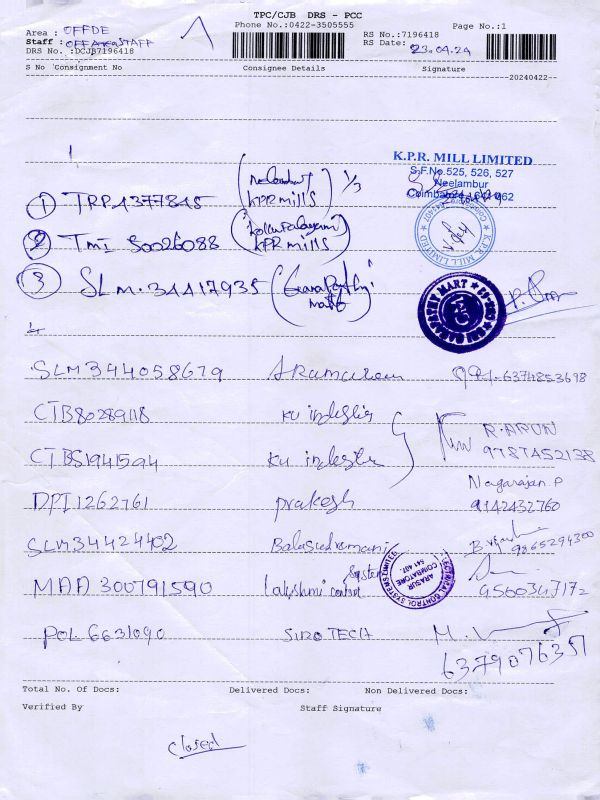 TPC/CJB DRS - PCC
Area : OFFDE
Phone No.:0422-3505555
Page No.:1
Staff : STAFF
RS No.:7196418
DRS No. :DCJB7196418
RS Date: 23.04.24
S No Consignment No
Consignee Details
Signature
20240422--
1
K.P.R. MILL LIMITED
S.F.No.525, 526, 527
Neelambur
Coimbatore 641 062
K.P.R. MILL LIMITED
1 TRP1377845 (Neelambur KPR mills) 1/3
2 TMI 50026088 (KPR mills)
3 SLM.34417935
MART
SLM344058679
6374853698
CTB80289118 ku
CTB51941594 ku
R.ARUN
9787452138
DPI1262761 prakash
Nagarajan P
9142432760
SLM34424402 Balasubramani
9865294300
MAA300791590 Lakshmi control System
CONTROL SYSTEMS LIMITED
ARASUR
COIMBATORE
641 407
9560347172
POL6631090 SURO TECH
M.
637907635
Total No. Of Docs:
Delivered Docs:
Non Delivered Docs:
Verified By
Staff Signature
Closed